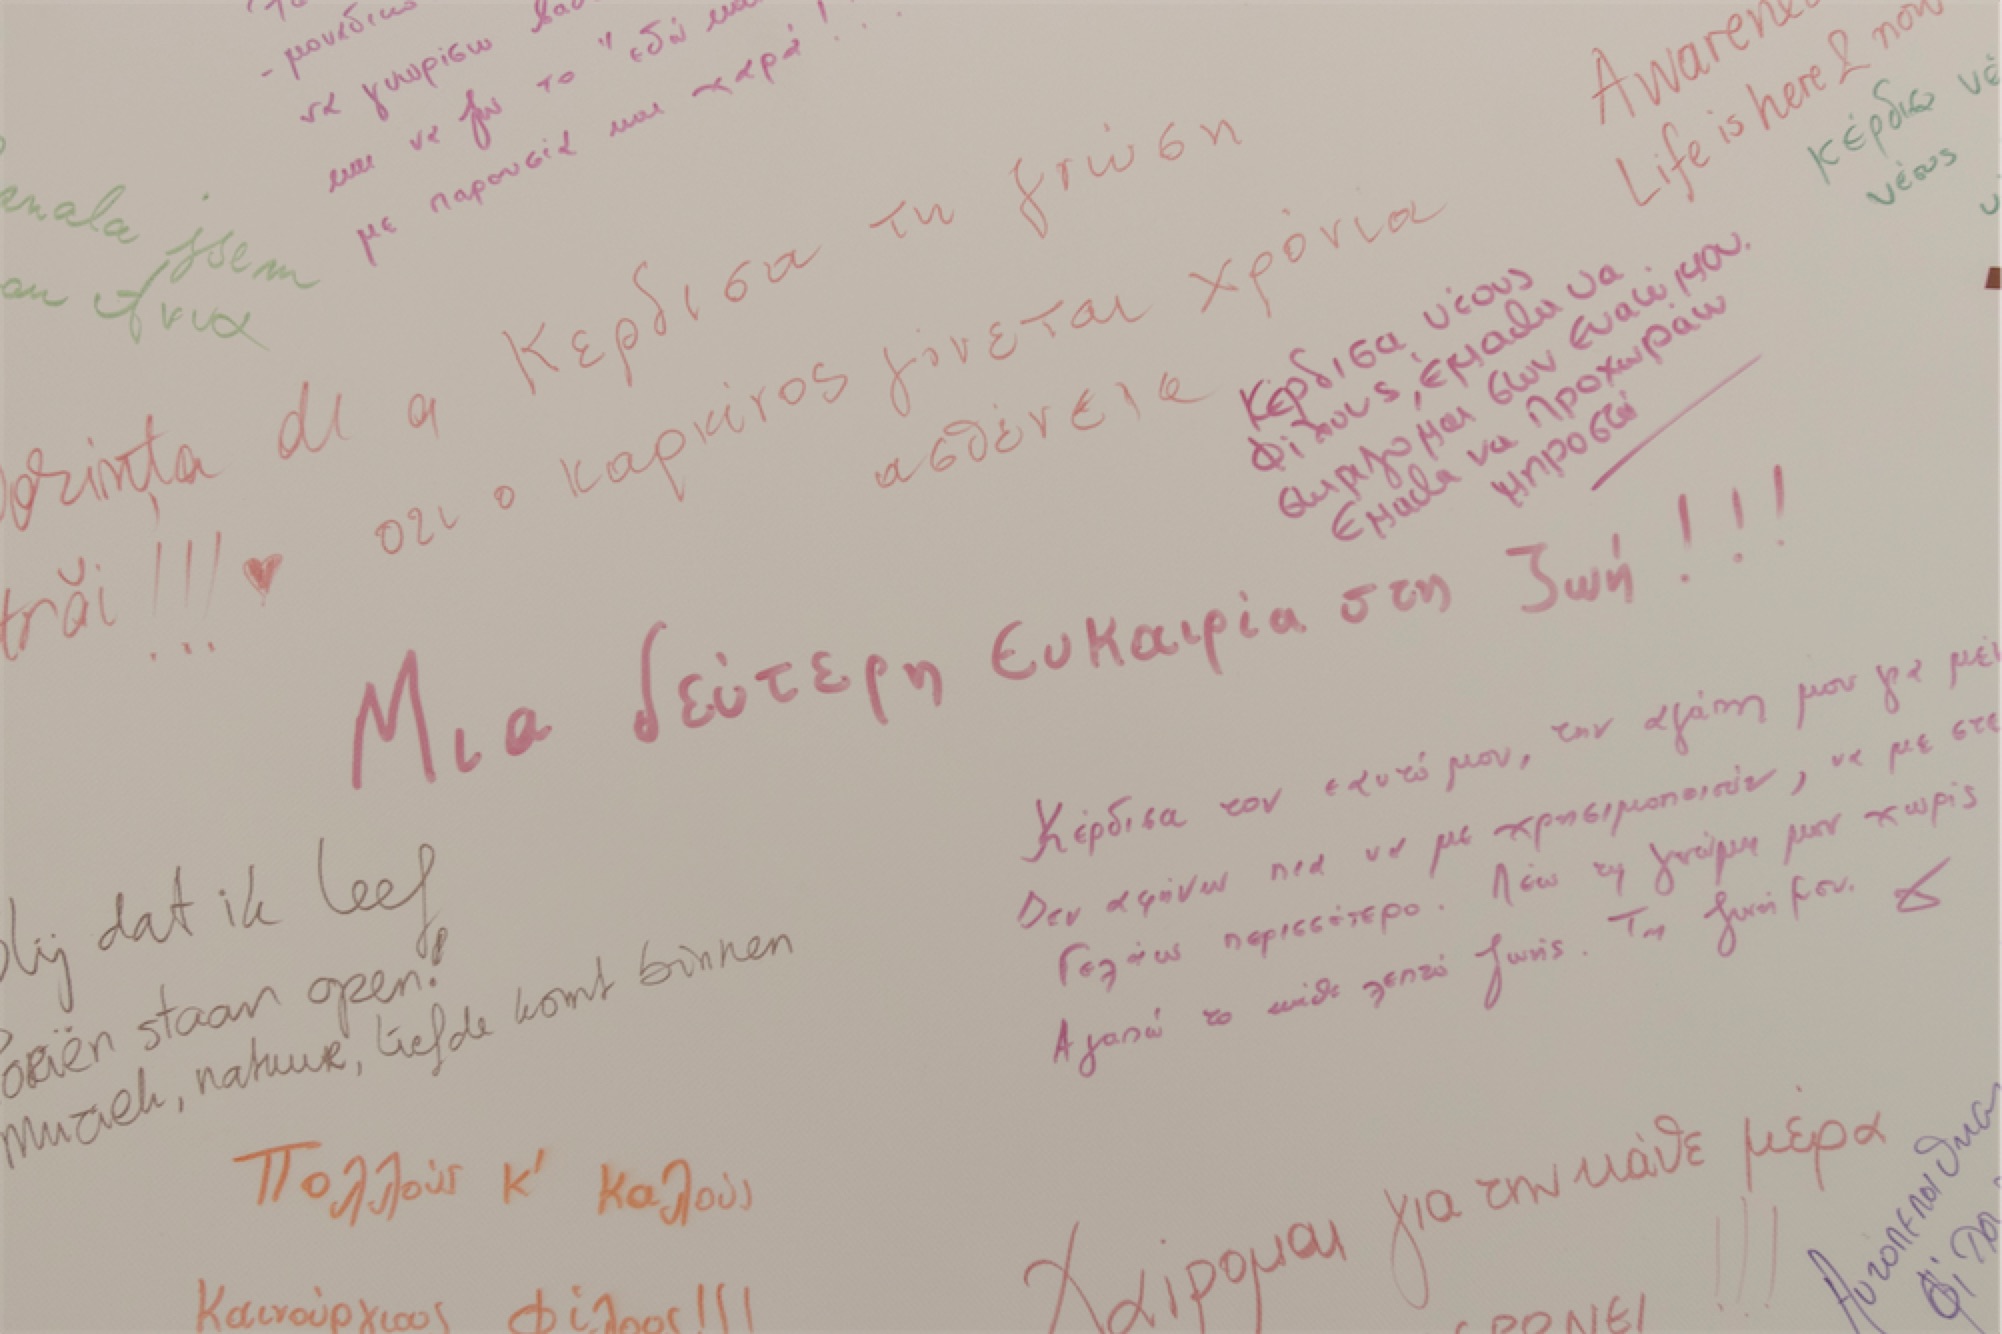 - μοναδικό
να γνωρίσω
και να ζω το "εδώ και
με παρουσία και χαρά!!..
Awareness
Life is here & now
κέρδισα νέ
νέους
jsem
Κερδισα τη γνώση
οτι ο καρκίνος γίνεται χρόνια
ασθένεια
dorința de a
trăi !!!
Κέρδισα νέους
φίλους, έμαθα να
εκφράζομαι στων ευατώ μου.
Εμαθα να προχωράω
μπροστά
Μια δεύτερη ευκαιρία στη ζωή!!!
Κέρδισα τον εαυτό μου, την αγάπη μου για μέν
Δεν αφήνω πια να με χρησιμοποιούν, να με στε
Γελάω περισσότερο. Λέω τη γνώμη μου χωρίς
Αγαπώ το κάθε λεπτό ζωής. Τη ζωή μου.
Blij dat ik leef
staan open!
muziek, natuur, liefde komt binnen
Πολλούς κ' καλούς
Καινούργιους φίλους!!!
Χαίρομαι για την κάθε μέρα
!!!